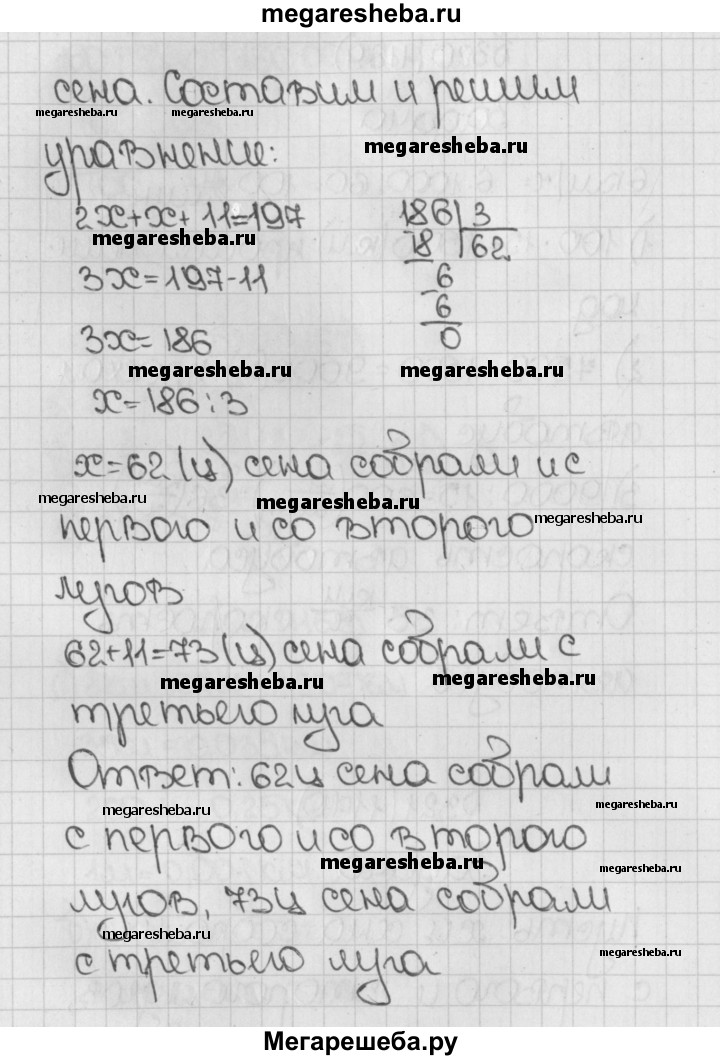 megaresheba.ru
сена. Составим и решим
megaresheba.ru megaresheba.ru
уравнение: megaresheba.ru
2x+x+11=197 186 3
megaresheba.ru 18 62
3x=197-11 6
6
3x=186 0
megaresheba.ru megaresheba.ru
x=186:3
x=62 (ц) сена собрали и с
megaresheba.ru megaresheba.ru
первого и со второго megaresheba.ru
лугов
62+11=73 (ц) сена собрали с
megaresheba.ru megaresheba.ru
третьего луга
Ответ: 62ц сена собрали
megaresheba.ru megaresheba.ru
с первого и со второго
megaresheba.ru megaresheba.ru
лугов, 73ц сена собрали
megaresheba.ru
с третьего луга megaresheba.ru
Мегарешеба.ру